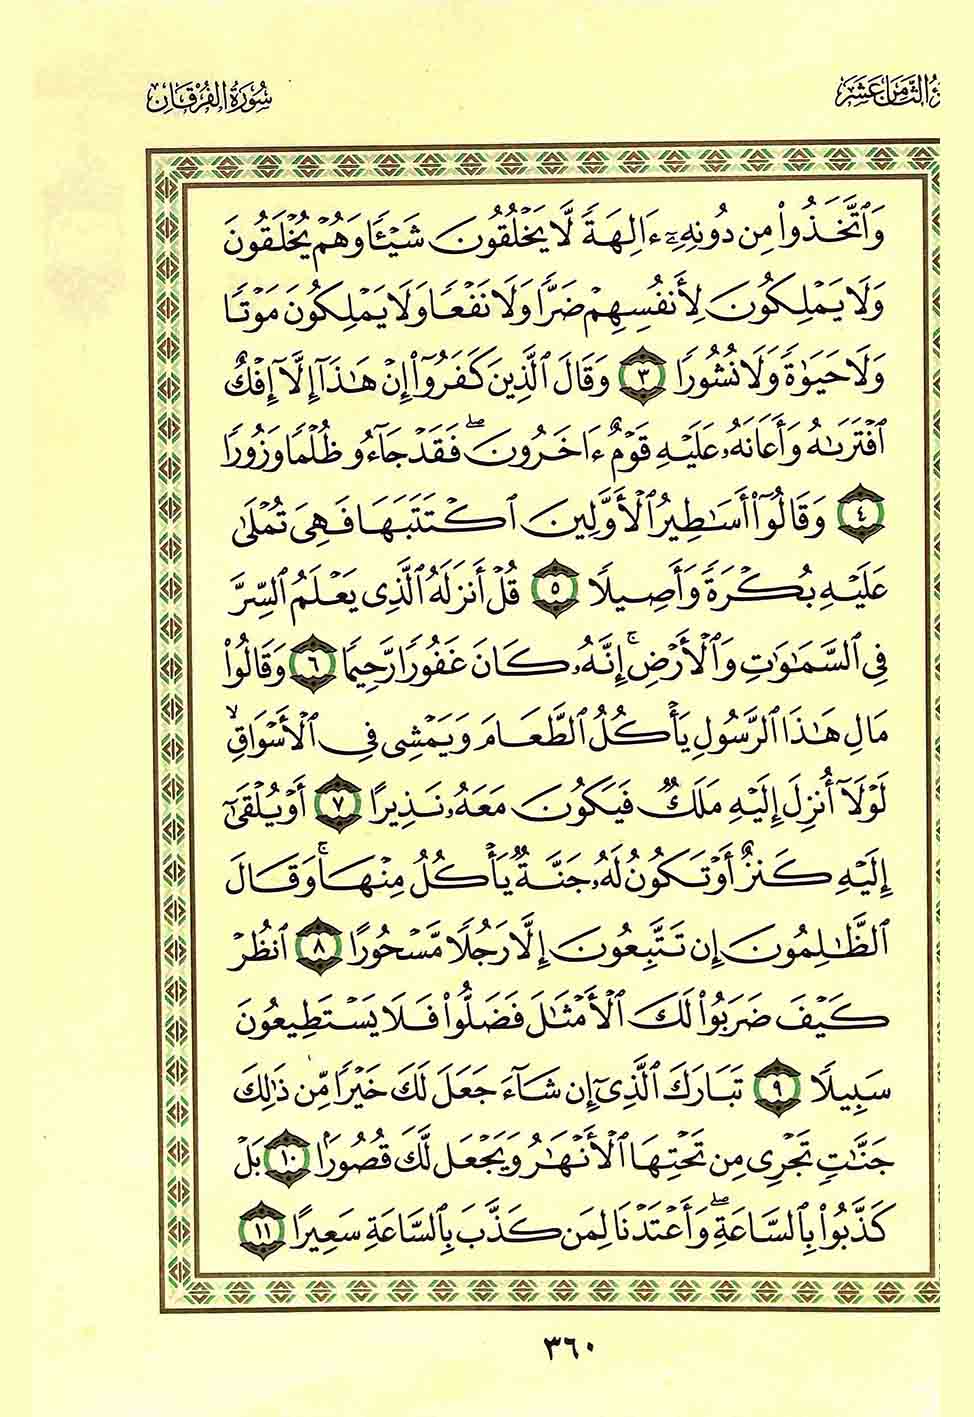 الثامن عشر
سورة الفرقان
وَٱتَّخَذُوا۟ مِن دُونِهِۦٓ ءَالِهَةً لَّا يَخْلُقُونَ شَيْـًٔا وَهُمْ يُخْلَقُونَ
وَلَا يَمْلِكُونَ لِأَنفُسِهِمْ ضَرًّا وَلَا نَفْعًا وَلَا يَمْلِكُونَ مَوْتًا
وَلَا حَيَوٰةً وَلَا نُشُورًا ٣ وَقَالَ ٱلَّذِينَ كَفَرُوٓا۟ إِنْ هَـٰذَآ إِلَّآ إِفْكٌ
ٱفْتَرَىٰهُ وَأَعَانَهُۥ عَلَيْهِ قَوْمٌ ءَاخَرُونَ ۖ فَقَدْ جَآءُو ظُلْمًا وَزُورًا
٤ وَقَالُوٓا۟ أَسَـٰطِيرُ ٱلْأَوَّلِينَ ٱكْتَتَبَهَا فَهِىَ تُمْلَىٰ
عَلَيْهِ بُكْرَةً وَأَصِيلًا ٥ قُلْ أَنزَلَهُ ٱلَّذِى يَعْلَمُ ٱلسِّرَّ
فِى ٱلسَّمَـٰوَٰتِ وَٱلْأَرْضِ ۚ إِنَّهُۥ كَانَ غَفُورًا رَّحِيمًا ٦ وَقَالُوا۟
مَالِ هَـٰذَا ٱلرَّسُولِ يَأْكُلُ ٱلطَّعَامَ وَيَمْشِى فِى ٱلْأَسْوَاقِ ۙ
لَوْلَآ أُنزِلَ إِلَيْهِ مَلَكٌ فَيَكُونَ مَعَهُۥ نَذِيرًا ٧ أَوْ يُلْقَىٰٓ
إِلَيْهِ كَنزٌ أَوْ تَكُونُ لَهُۥ جَنَّةٌ يَأْكُلُ مِنْهَا ۚ وَقَالَ
ٱلظَّـٰلِمُونَ إِن تَتَّبِعُونَ إِلَّا رَجُلًا مَّسْحُورًا ٨ ٱنظُرْ
كَيْفَ ضَرَبُوا۟ لَكَ ٱلْأَمْثَـٰلَ فَضَلُّوا۟ فَلَا يَسْتَطِيعُونَ
سَبِيلًا ٩ تَبَارَكَ ٱلَّذِىٓ إِن شَآءَ جَعَلَ لَكَ خَيْرًا مِّن ذَٰلِكَ
جَنَّـٰتٍ تَجْرِى مِن تَحْتِهَا ٱلْأَنْهَـٰرُ وَيَجْعَل لَّكَ قُصُورًۢا ١٠ بَلْ
كَذَّبُوا۟ بِٱلسَّاعَةِ ۖ وَأَعْتَدْنَا لِمَن كَذَّبَ بِٱلسَّاعَةِ سَعِيرًا ١١
٣٦٠